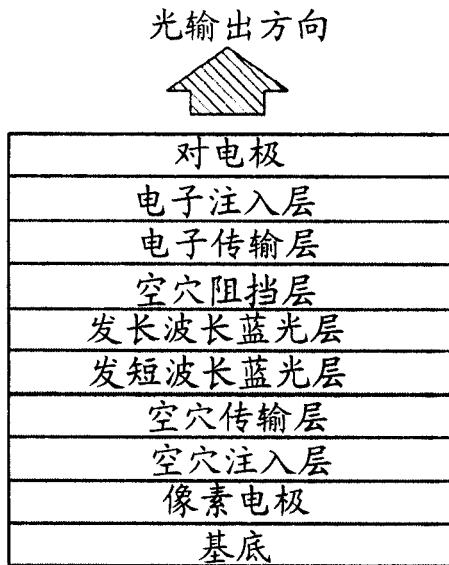 光输出方向
对电极
电子注入层
电子传输层
空穴阻挡层
发长波长蓝光层
发短波长蓝光层
空穴传输层
空穴注入层
像素电极
基底